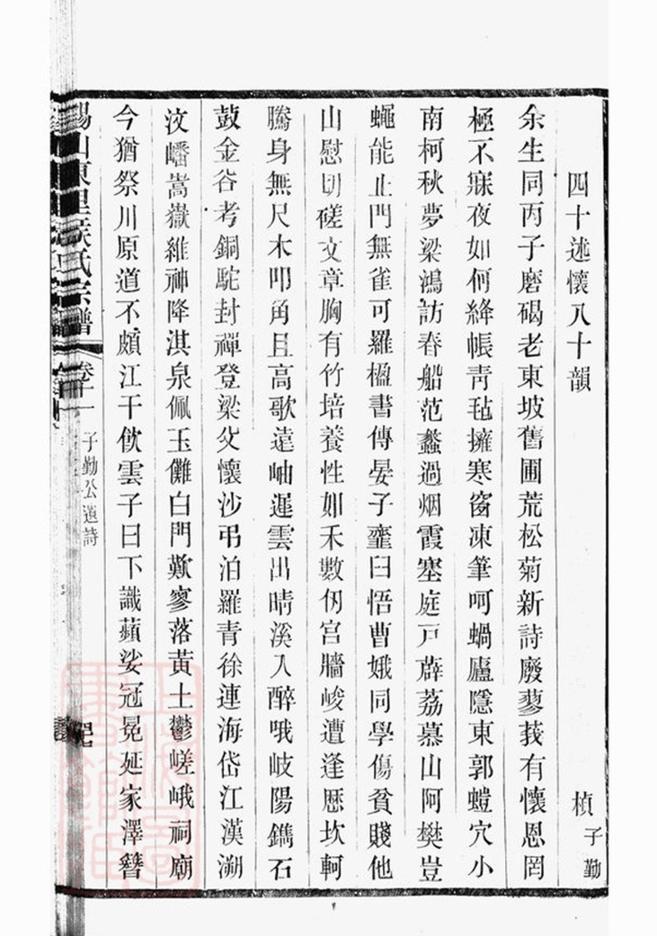 四十述懷八十韻
楨子勤
余生同丙子磨碣老東坡舊圃荒松菊新詩廢蓼莪有懷恩罔
極不寐夜如何絳帳青毡擁寒窗凍筆呵蝸廬隱東郭螘穴小
南柯秋夢梁鴻訪春船范蠡過烟霞塞庭戸薜荔慕山阿樊豈
蠅能止門無雀可羅楹書傳晏子虀臼悟曹娥同學傷貧賤他
山慰切磋文章胸有竹培養性如禾數仞宮牆峻遭逢歴坎軻
騰身無尺木叩角且高歌遠岫遲雲出晴溪入醉哦岐陽鐫石
鼓金谷考銅駝封禪登梁父懷沙弔泊羅青徐連海岱江漢溯
汶嶓嵩嶽維神降淇泉佩玉儺白門歎寥落黃土鬱嵯峨祠廟
今猶祭川原道不頗江干飲雲子日下識蘋娑冠冕延家澤簪
錫山東里侯氏宗譜
卷十一
子勤公遺詩